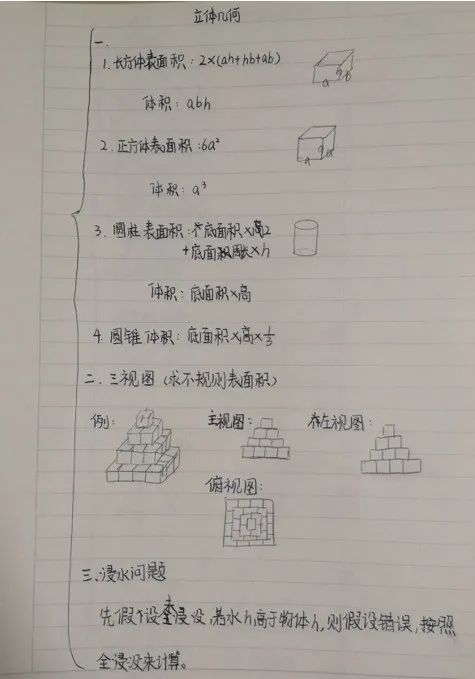 立体几何
一.
1. 长方体表面积：2×(ah+hb+ab)
a h b
体积：abh
2. 正方体表面积：6a²
a a a
体积：a³
3. 圆柱表面积：底面积×2
+底面周长×h
体积：底面积×高
4. 圆锥体积：底面积×高×1/3
二. 三视图（求不规则表面积）
例：
主视图：
左视图：
俯视图：
三. 浸水问题
先假设未全浸没，若水h高于物体h，则假设错误，按照
全浸没来计算。